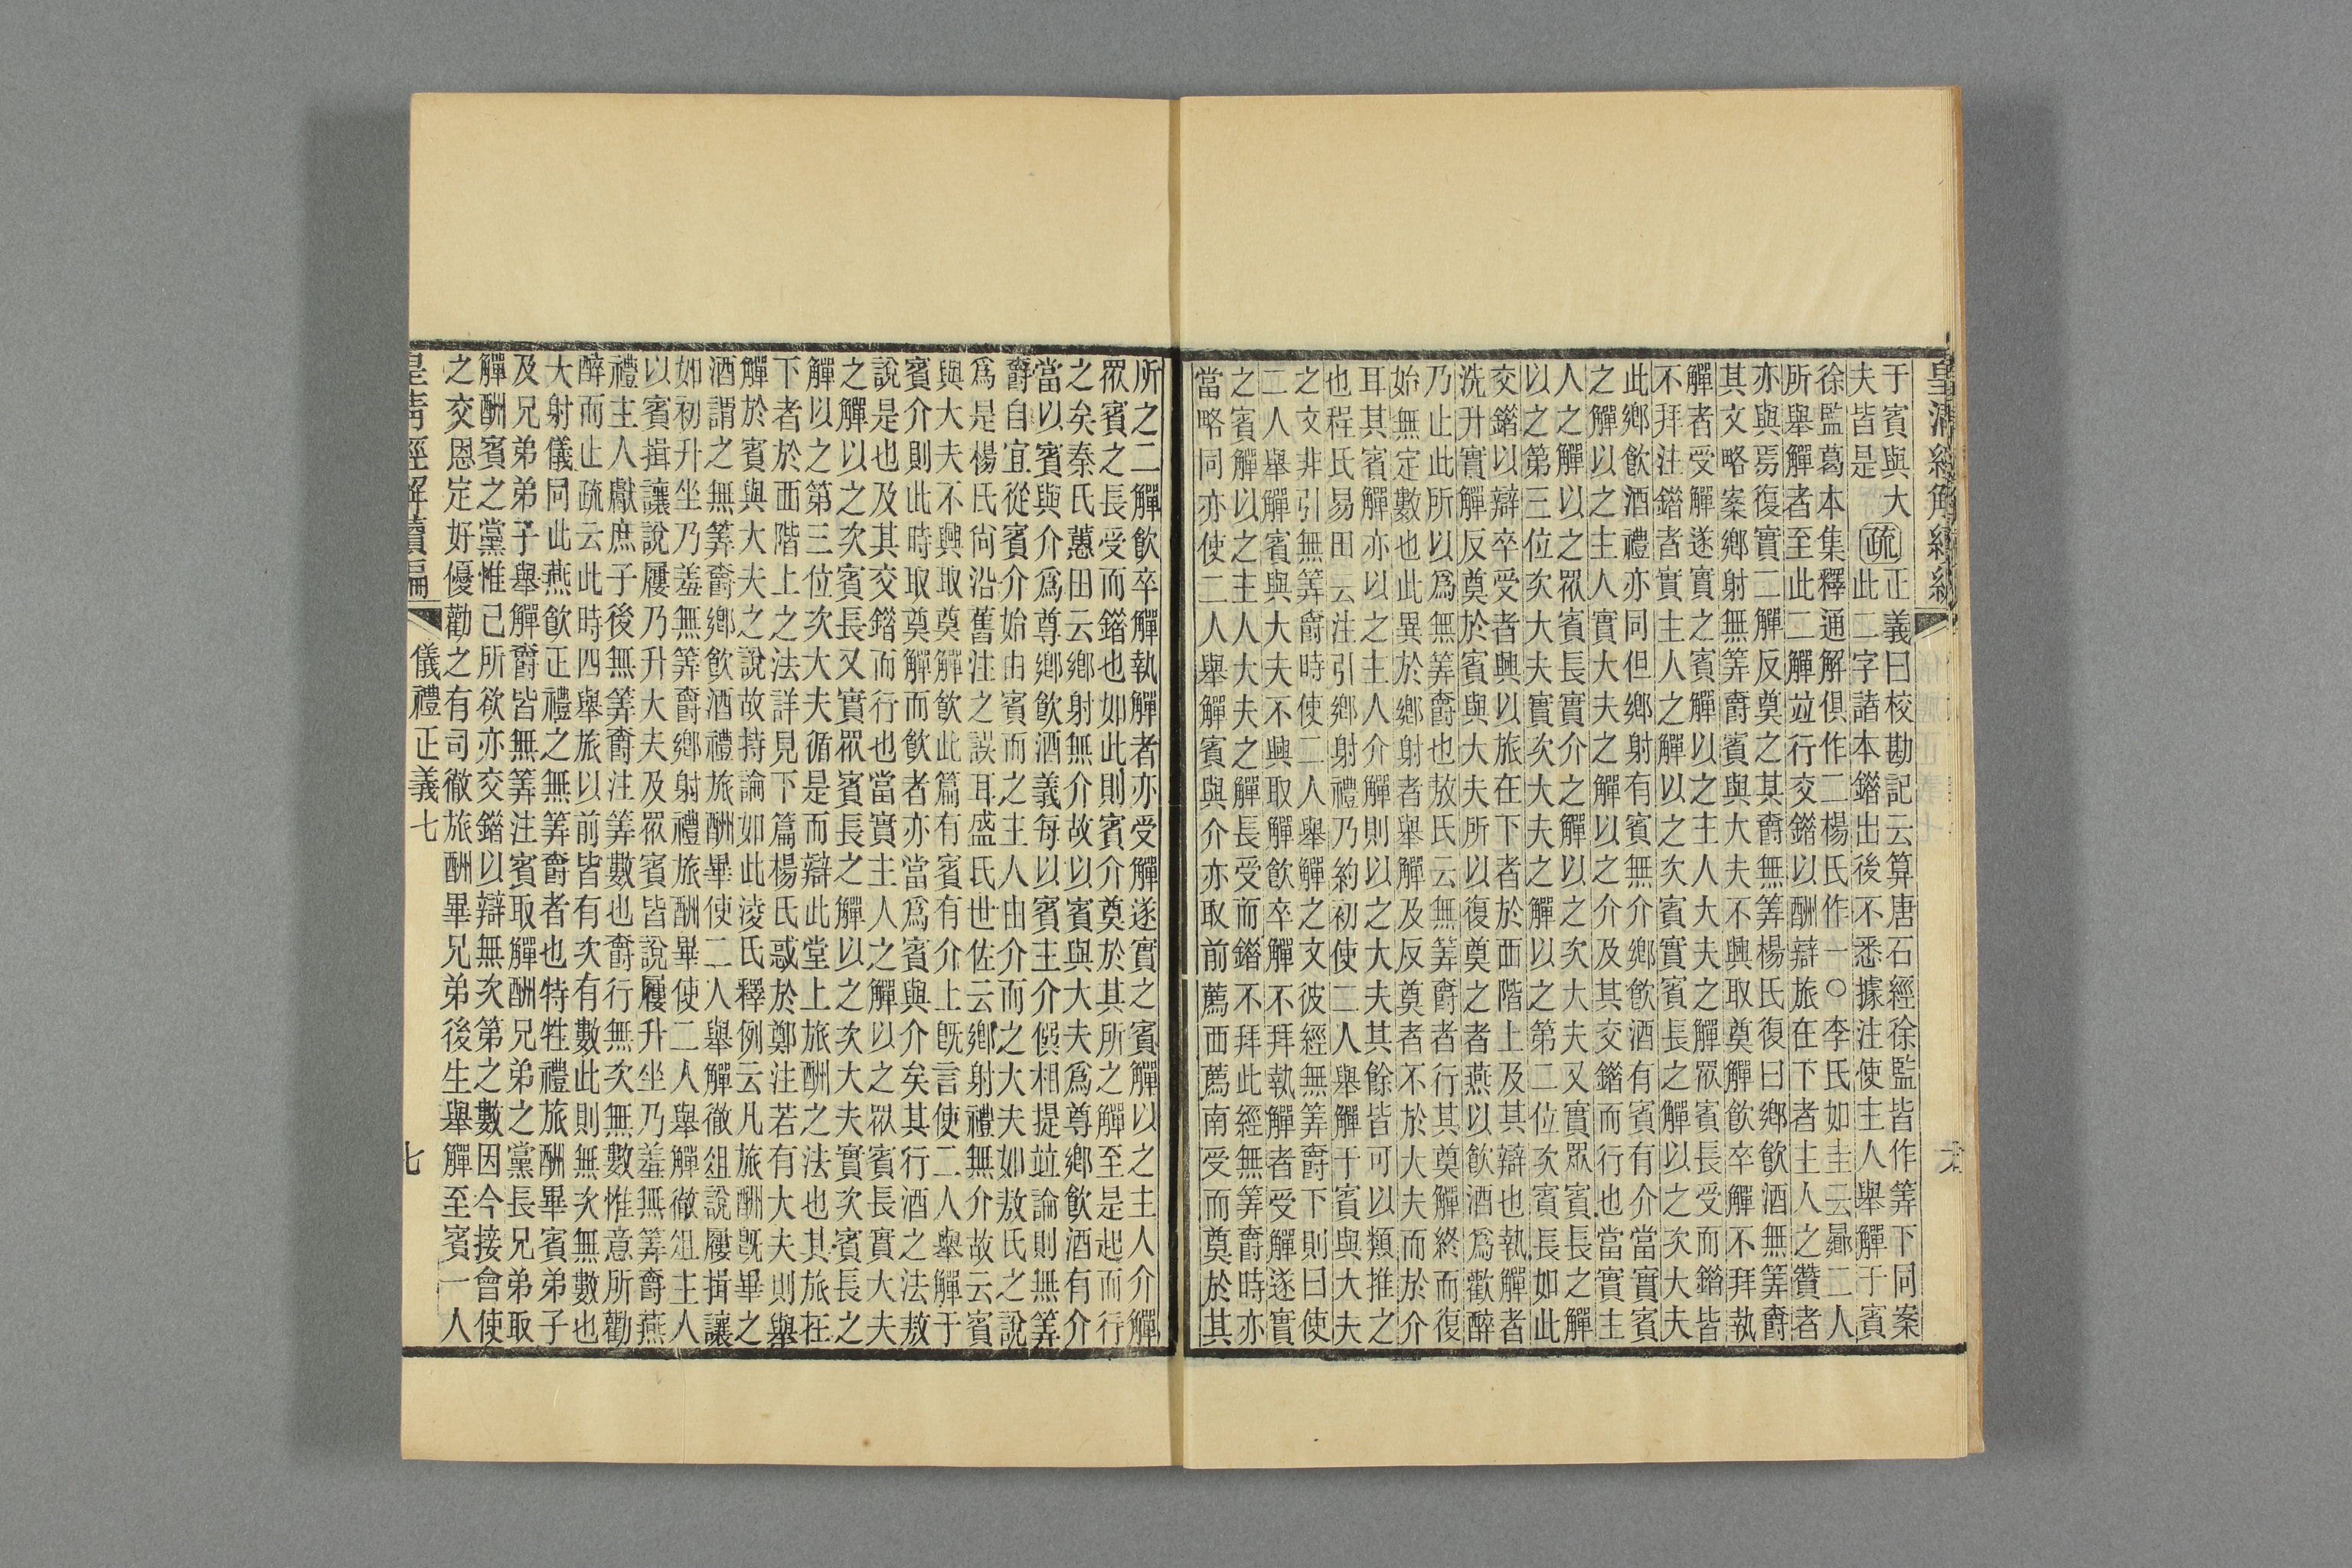 皇清經解續編
于賓與大
夫皆是
疏
正義曰校勘記云算唐石經徐監皆作筭下同案
此二字諸本錯出後不悉據注使主人舉觶于賓
徐監葛本集釋通解俱作二楊氏作一○李氏如圭云曏二人
所舉觶者至此二觶竝行交錯以酬辯旅在下者主人之贊者
亦與焉復實二觶反奠之其爵無筭楊氏復曰鄉飲酒無筭爵
其文略案鄉射無筭爵賓與大夫不興取奠觶飲卒觶不拜執
觶者受觶遂實之賓觶以之主人大夫之觶眾賓長受而錯皆
不拜注錯者實主人之觶以之次賓實賓長之觶以之次大夫
此鄉飲酒禮亦同但鄉射有賓無介鄉飲酒有賓有介當實賓
之觶以之主人實大夫之觶以之介及其交錯而行也當實主
人之觶以之眾賓長實介之觶以之次大夫又實眾賓長之觶
以之第三位次大夫實次大夫之觶以之第二位次賓長如此
交錯以辯卒受者興以旅在下者於西階上及其辯也執觶者
洗升實觶反奠於賓與大夫所以復奠之者燕以飲酒爲歡醉
乃止此所以爲無筭爵也敖氏云無筭爵者行其奠觶終而復
始無定數也此異於鄉射者舉觶及反奠者不於大夫而於介
耳其賓觶亦以之主人介觶則以之大夫其餘皆可以類推之
也程氏易田云注引鄉射禮乃約初使二人舉觶于賓與大夫
之文非引無筭爵時使二人舉觶之文彼經無筭爵下則曰使
二人舉觶賓與大夫不興取觶飲卒觶不拜執觶者受觶遂實
之賓觶以之主人大夫之觶長受而錯不拜此經無筭爵時亦
當略同亦使二人舉觶賓與介亦取前薦西薦南受而奠於其
所之二觶飲卒觶執觶者亦受觶遂實之賓觶以之主人介觶
眾賓之長受而錯也如此則賓介奠於其所之觶至是起而行
之矣秦氏蕙田云鄉射無介故以賓與大夫爲尊鄉飲酒有介
當以賓與介爲尊鄉飲酒義每以賓主介僎相提竝論則無筭
爵自宜從賓介始由賓而之主人由介而之大夫如敖氏之說
爲是楊氏尙沿舊注之誤耳盛氏世佐云鄉射禮無介故云賓
與大夫不興取奠觶飲此篇有賓有介上旣言使二人舉觶于
賓介則此時取奠觶而飲者亦當爲賓與介矣其行酒之法敖
說是也及其交錯而行也當實主人之觶以之眾賓長實大夫
之觶以之次賓長又實眾賓長之觶以之次大夫實次賓長之
觶以之第三位次大夫循是而辯此堂上旅酬之法也其旅在
下者於西階上之法詳見下篇楊氏惑於鄭注若有大夫則舉
觶於賓與大夫之說故持論如此淩氏釋例云凡旅酬旣畢之
酒謂之無筭爵鄉飲酒禮旅酬畢使二人舉觶徹俎說屨揖讓
如初升坐乃羞無筭爵鄉射禮旅酬畢使二人舉觶徹俎主人
以賓揖讓說屨乃升大夫及眾賓皆說屨升坐乃羞無筭爵燕
禮主人獻庶子後無筭爵注筭數也爵行無次無數惟意所勸
醉而止疏云此時四舉旅以前皆有次有數此則無次無數也
大射儀同此燕飲正禮之無筭爵者也特牲禮旅酬畢賓弟子
及兄弟弟子舉觶爵皆無筭注賓取觶酬兄弟之黨長兄弟取
觶酬賓之黨惟已所欲亦交錯以辯無次第之數因今接會使
之交恩定好優勸之有司徹旅酬畢兄弟後生舉觶至賓一人
皇清經解續編
儀禮正義七
七